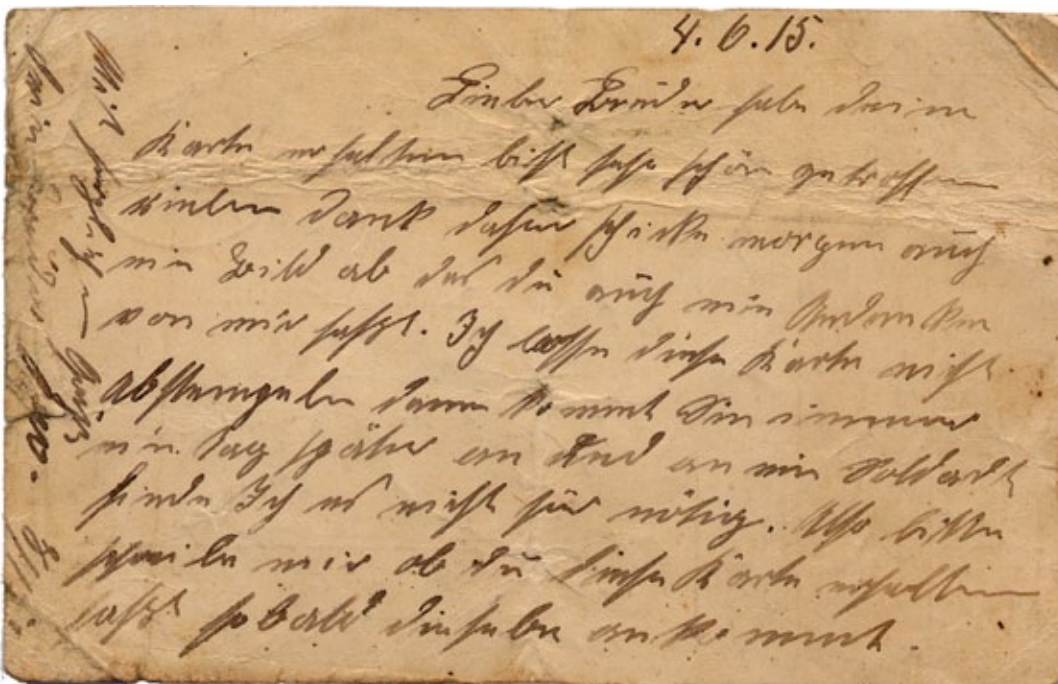 4. 6. 15.
Lieber Bruder habe deine
Karte erhalten bist sehr schön getroffen
vielen Dank dafür schicke morgen auch
ein Bild ab das du auch ein Andenken
von mir hast. Ich lasse diese Karte nicht
abstempeln denn kommt Sie immer
ein Tag später an und an ein Soldadt
finde Ich es nicht für nötig. Also bitte
schreibe mir ob du diese Karte erhalten
hast sobald dieselbe ankommt.
Mit herzlichem Gruß
dein Bruder